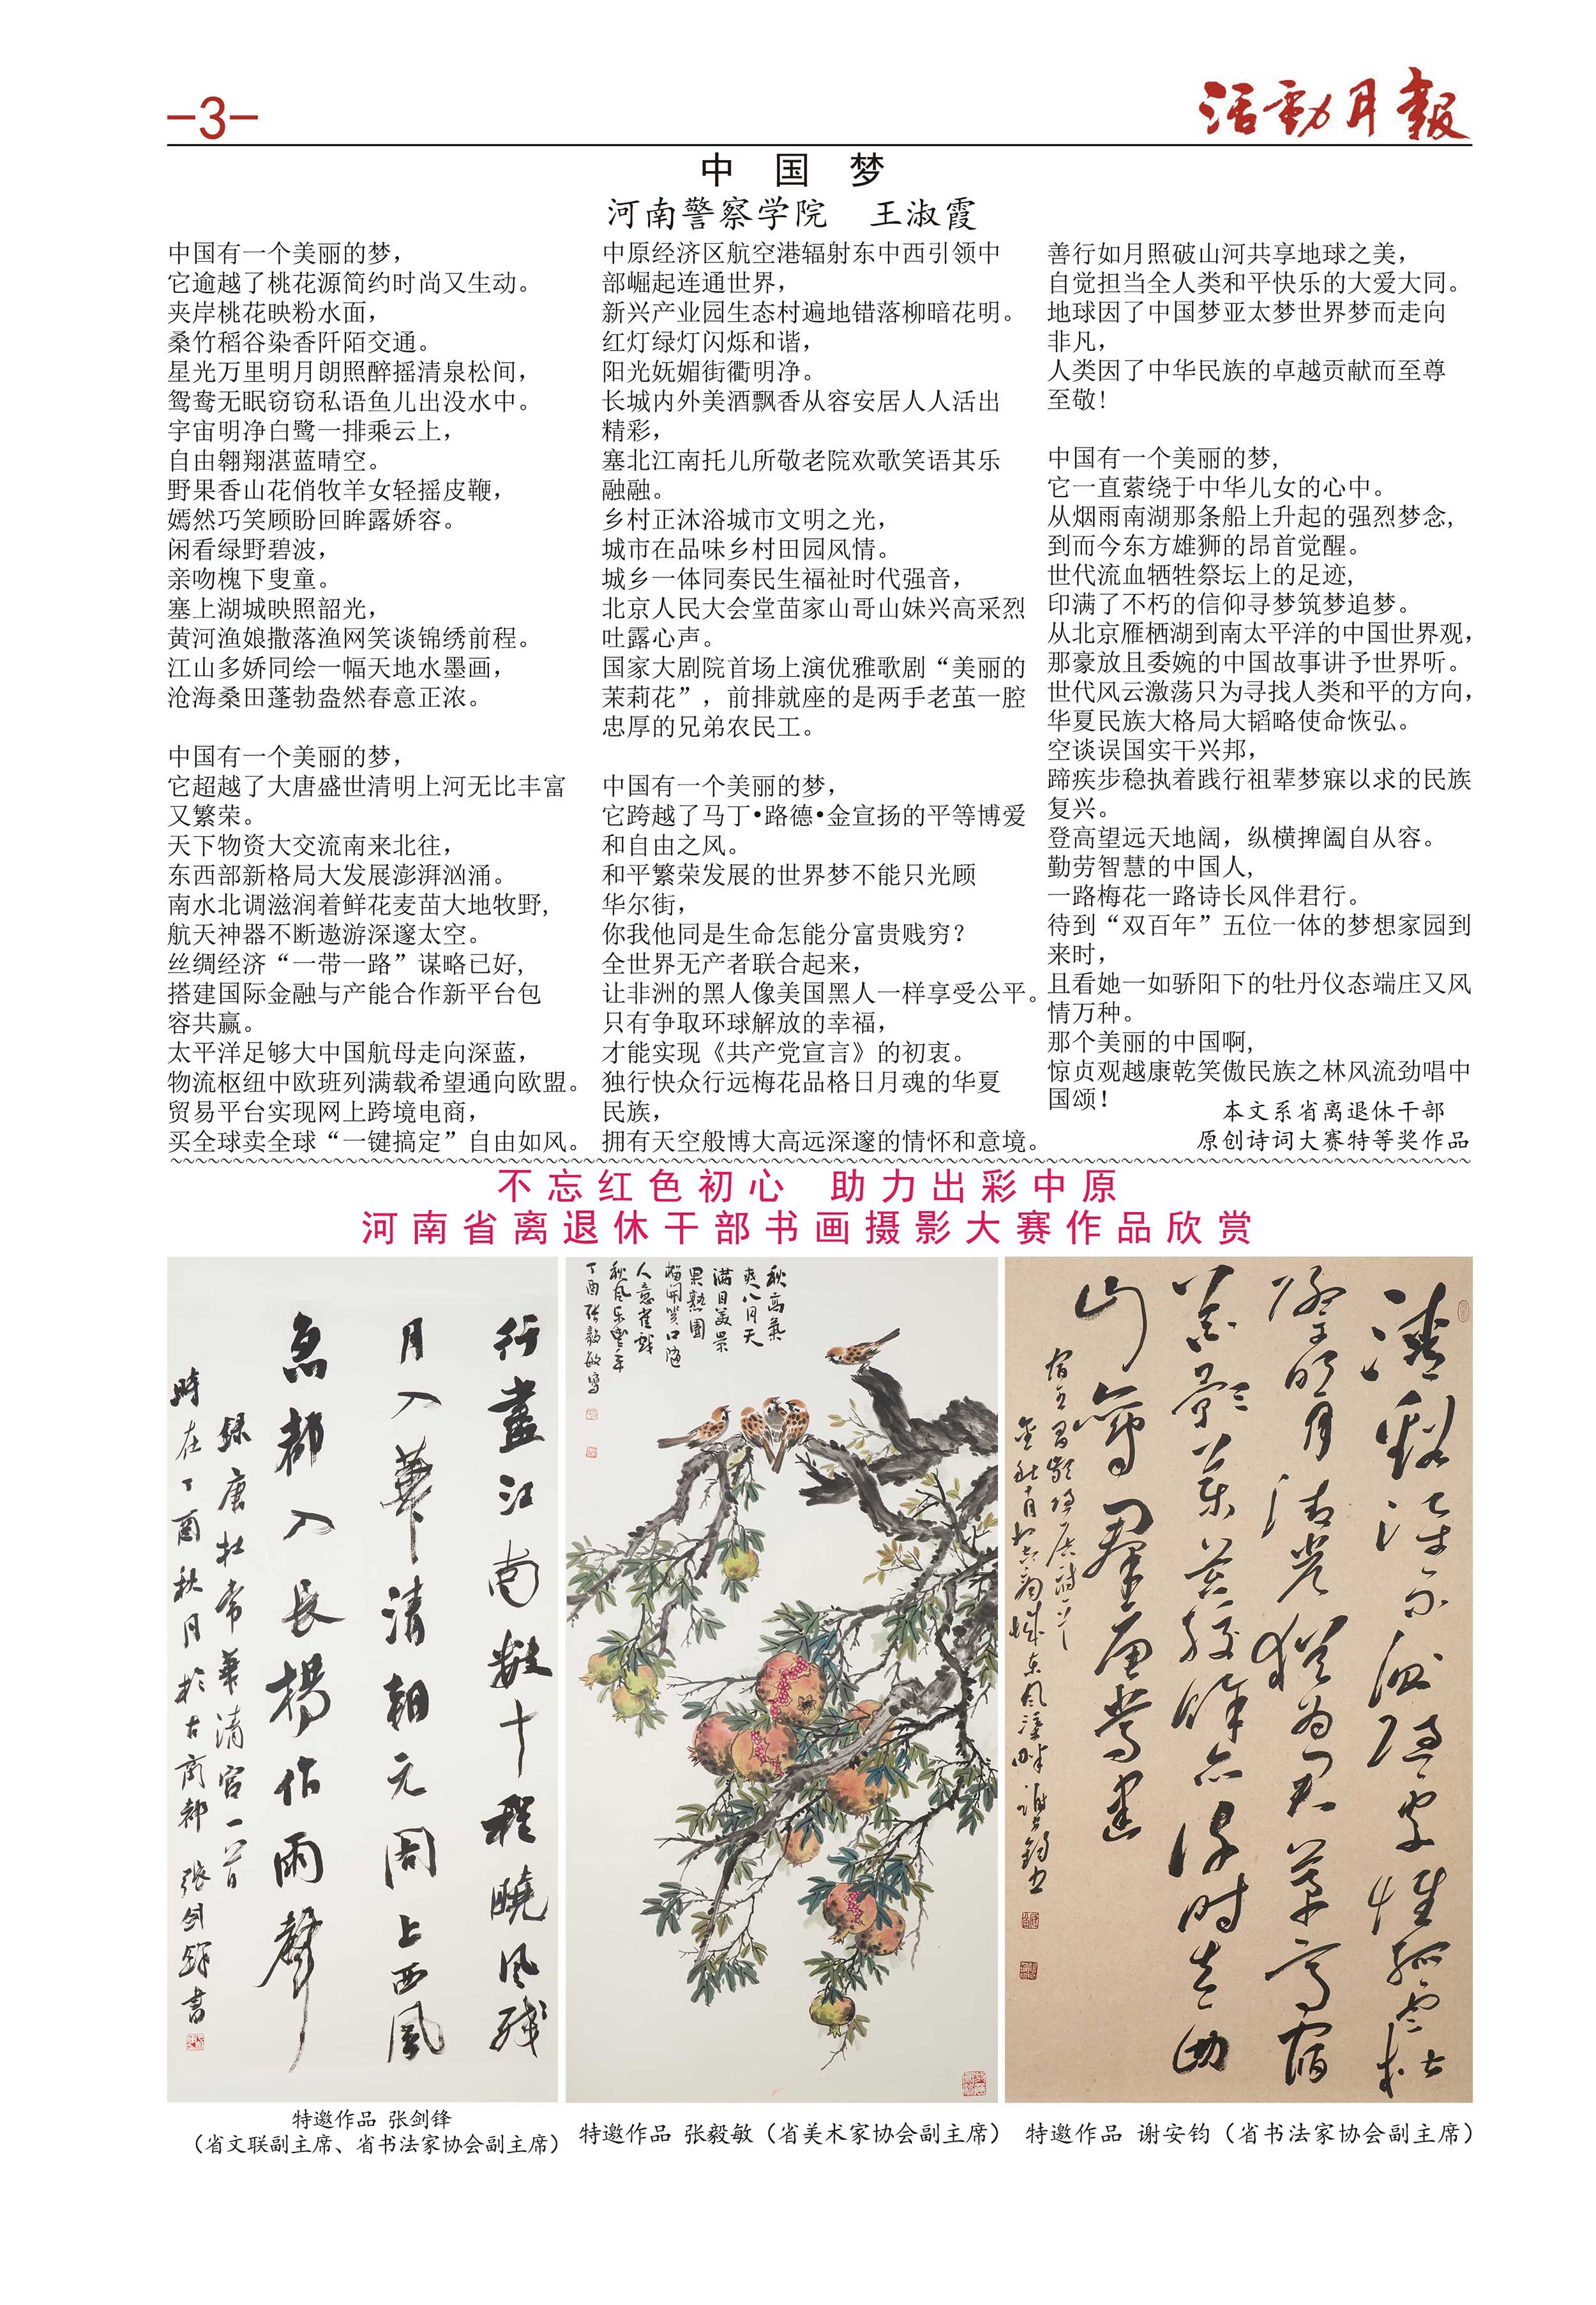 -3-
活動月報
中国梦
河南警察学院 王淑霞
中国有一个美丽的梦，
它逾越了桃花源简约时尚又生动。
夹岸桃花映粉水面，
桑竹稻谷染香阡陌交通。
星光万里明月朗照醉摇清泉松间，
鸳鸯无眠窃窃私语鱼儿出没水中。
宇宙明净白鹭一排乘云上，
自由翱翔湛蓝晴空。
野果香山花俏牧羊女轻摇皮鞭，
嫣然巧笑顾盼回眸露娇容。
闲看绿野碧波，
亲吻槐下叟童。
塞上湖城映照韶光，
黄河渔娘撒落渔网笑谈锦绣前程。
江山多娇同绘一幅天地水墨画，
沧海桑田蓬勃盎然春意正浓。
中国有一个美丽的梦，
它超越了大唐盛世清明上河无比丰富
又繁荣。
天下物资大交流南来北往，
东西部新格局大发展澎湃汹涌。
南水北调滋润着鲜花麦苗大地牧野，
航天神器不断遨游深邃太空。
丝绸经济“一带一路”谋略已好，
搭建国际金融与产能合作新平台包
容共赢。
太平洋足够大中国航母走向深蓝，
物流枢纽中欧班列满载希望通向欧盟。
贸易平台实现网上跨境电商，
买全球卖全球“一键搞定”自由如风。
中原经济区航空港辐射东中西引领中
部崛起连通世界，
新兴产业园生态村遍地错落柳暗花明。
红灯绿灯闪烁和谐，
阳光妩媚街衢明净。
长城内外美酒飘香从容安居人人活出
精彩，
塞北江南托儿所敬老院欢歌笑语其乐
融融。
乡村正沐浴城市文明之光，
城市在品味乡村田园风情。
城乡一体同奏民生福祉时代强音，
北京人民大会堂苗家山哥山妹兴高采烈
吐露心声。
国家大剧院首场上演优雅歌剧“美丽的
茉莉花”，前排就座的是两手老茧一腔
忠厚的兄弟农民工。
中国有一个美丽的梦，
它跨越了马丁•路德•金宣扬的平等博爱
和自由之风。
和平繁荣发展的世界梦不能只光顾
华尔街，
你我他同是生命怎能分富贵贱穷？
全世界无产者联合起来，
让非洲的黑人像美国黑人一样享受公平。
只有争取环球解放的幸福，
才能实现《共产党宣言》的初衷。
独行快众行远梅花品格日月魂的华夏
民族，
拥有天空般博大高远深邃的情怀和意境。
善行如月照破山河共享地球之美，
自觉担当全人类和平快乐的大爱大同。
地球因了中国梦亚太梦世界梦而走向
非凡，
人类因了中华民族的卓越贡献而至尊
至敬！
中国有一个美丽的梦，
它一直萦绕于中华儿女的心中。
从烟雨南湖那条船上升起的强烈梦念，
到而今东方雄狮的昂首觉醒。
世代流血牺牲祭坛上的足迹，
印满了不朽的信仰寻梦筑梦追梦。
从北京雁栖湖到南太平洋的中国世界观，
那豪放且委婉的中国故事讲予世界听。
世代风云激荡只为寻找人类和平的方向，
华夏民族大格局大韬略使命恢弘。
空谈误国实干兴邦，
蹄疾步稳执着践行祖辈梦寐以求的民族
复兴。
登高望远天地阔，纵横捭阖自从容。
勤劳智慧的中国人，
一路梅花一路诗长风伴君行。
待到“双百年”五位一体的梦想家园到
来时，
且看她一如骄阳下的牡丹仪态端庄又风
情万种。
那个美丽的中国啊，
惊贞观越康乾笑傲民族之林风流劲唱中
国颂！
本文系省离退休干部
原创诗词大赛特等奖作品
不忘红色初心 助力出彩中原
河南省离退休干部书画摄影大赛作品欣赏
行盡江南數十程曉風殘
月入華清朝元閣上西風
急都入長楊作雨聲
録唐杜常華清宮一首
時在丁酉秋月於古商都 張劍鋒書
秋高氣
爽八月天
滿目美景
果熟團
榴開笑口酒
人意雀戲
秋風樂豐年
丁酉張毅敏寫
清谿深不測隱處惟孤雲松
際露明月清光猶為君茅亭宿
花影藥院滋苔紋余亦謝時去西
山鸞鶴群
特邀作品 张剑锋
（省文联副主席、省书法家协会副主席）
特邀作品 张毅敏（省美术家协会副主席）
特邀作品 谢安钧（省书法家协会副主席）